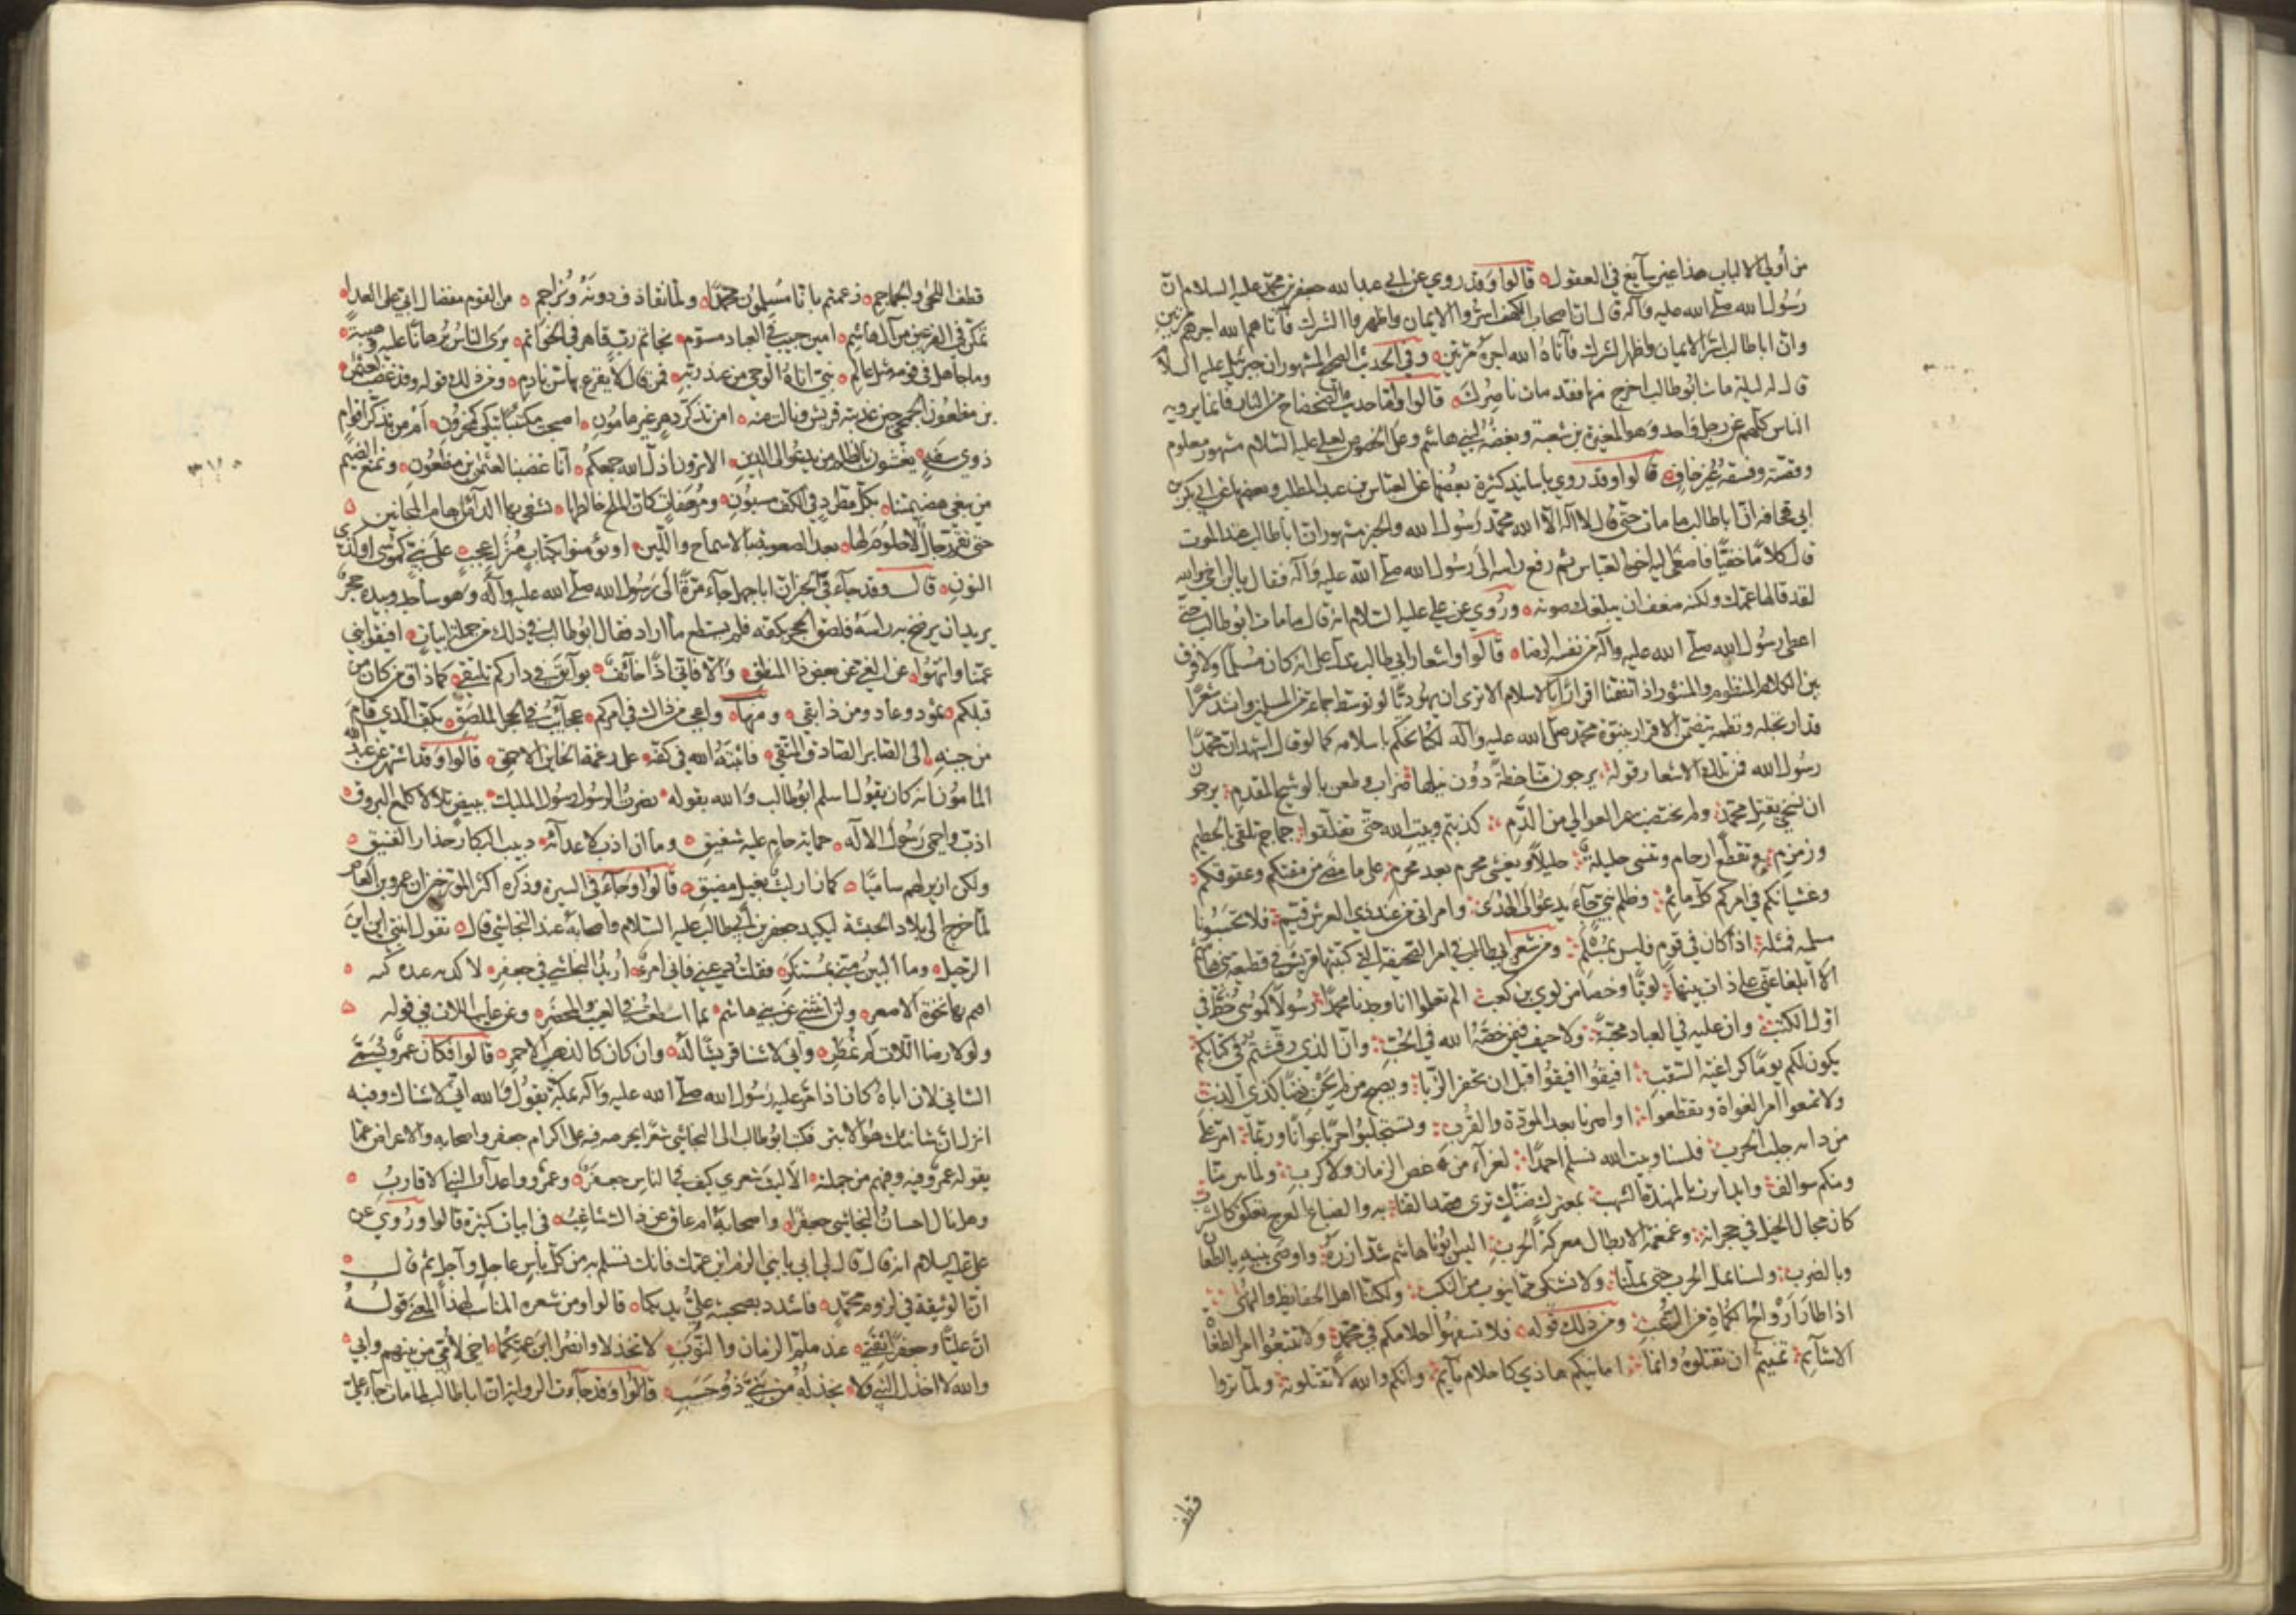 من أولي الالباب هذا غير سائغ في العقول قالوا وقد روي عن ابي عبد الله جعفر بن محمد عليه السلام ان
رسول الله صلى الله عليه وآله قال ان اصحاب الكهف اسروا الايمان واظهروا الشرك فآتاهم الله اجرهم مرتين
وان ابا طالب اسر الايمان واظهر الشرك فآتاه الله اجره مرتين وفي الحديث الصحيح المشهور ان جبرئيل عليه السلام
قال له ليلة مات ابو طالب اخرج منها فقد مات ناصرك قالوا واما حديث الضحضاح من النار فانما يرويه
الناس كلهم عن رجل واحد وهو المغيرة بن شعبة وبغضه لبني هاشم وعلى الخصوص لعلي عليه السلام مشهور معلوم
وقصته وفسقه غير خاف قالوا وقد روي باسانيد كثيرة بعضها عن العباس بن عبد المطلب وبعضها عن ابي بكر بن
ابي قحافه ان ابا طالب ما مات حتى قال لا اله الا الله محمد رسول الله والخبر مشهور ان ابا طالب عند الموت
قال كلاما خفيا فاصغى اليه اخوه العباس ثم رفع راسه الى رسول الله صلى الله عليه وآله فقال يا ابن اخي والله
لقد قالها عمك ولكنه ضعف ان يبلغك صوته وروي عن علي عليه السلام انه قال ما مات ابو طالب حتى
اعطى رسول الله صلى الله عليه وآله من نفسه الرضا قالوا واشعار ابي طالب تدل على انه كان مسلما ولا فرق
بين الكلام المنظوم والمنثور اذا تضمنا اقرارا بالاسلام الا ترى ان يهوديا لو توسط جماعة من المسلمين وانشد شعرا
قد ارتجله ونظمه يتضمن الاقرار بنبوة محمد صلى الله عليه وآله لكنا نحكم باسلامه كما لو قال اشهد ان محمدا
رسول الله فمن تلك الاشعار قوله يرجون منا خطة دون نيلها ضراب وطعن بالوشيج المقدم يرجون
ان نسخي بقتل محمد ولم تختضب سمر العوالي من الدم كذبتم وبيت الله حتى تفلقوا جماجم تلقى بالحطيم
وزمزم وتقطع ارحام وتنسى حليلة حليلا ويغشى محرم بعد محرم على ما مضى من مقتكم وعقوقكم
وغشيانكم في امركم كل ماثم وظلم نبي جاء يدعو الى الهدى وامر اتى من عند ذي العرش قيم فلا تحسبونا
مسلميه فمثله اذا كان في قوم فليس بمسلم ومن شعر ابي طالب في امر الصحيفة التي كتبتها قريش في قطيعة بني هاشم
الا ابلغا عني على ذات بينها لويا وخصا من لوي بني كعب الم تعلموا انا وجدنا محمدا رسولا كموسى خط في
اول الكتب وان عليه في العباد محبة ولا حيف فيمن خصه الله في الحب وان الذي رقشتم في كتابكم
يكون لكم يوما كراغية السقب افيقوا افيقوا قبل ان تحفر الزبا ويصبح من لم يجن ذنبا كذي الذنب
ولا تتبعوا امر الغواة وتقطعوا اواصرنا بعد المودة والقرب وتستجلبوا حربا عوانا وربما امر على
من ذاقه حلب الحرب فلسنا وبيت الله نسلم احمدا لعزاء من عض الزمان ولا كرب ولما تبن منا
ومنكم سوالف وايد اترت بالمهندة الشهب بمعترك ضنك ترى قصد القنا به والضباع العرج تعكف كالشرب
كان مجال الخيل في حجراته وغمغمة الابطال معركة الحرب اليس ابونا هاشم شد ازره واوصى بنيه بالطعان
وبالضرب ولسنا نمل الحرب حتى تملنا ولا نشتكي مما ينوب من النكب ولكننا اهل الحفايظ والنهى
اذا طار ارواح الكماة من الرعب ومن ذلك قوله فلا تسفهوا احلامكم في محمد ولا تتبعوا امر الطغاة
الاشائم تمنيتم ان تقتلوه وانما امانيكم هاذي كاحلام نائم وانكم والله لا تقتلونه ولما تروا
قطف
قطف اللحى والجماجم زعمتم بانا مسلمون محمدا ولما نقاذف دونه ونزاحم من القوم مفضال ابي على العدا
تمكن في الفرعين من آل هاشم امين حبيب في العباد مسوم بخاتم رب قاهر في الخواتم يرى الناس برهانا عليه وهيبة
وما جاهل في قومه مثل عالم نبي اتاه الوحي من عند ربه فمن قال لا يقرع بها سن نادم ومن ذلك قوله وقد غضب لعثمن
بن مظعون الجمحي حين عذبته قريش ونالت منه امن تذكر دهر غير مامون اصبحت مكتئبا تبكي كمحزون أم من تذكر اقوام
ذوي سفه يغشون بالظلم من يدعو الى الدين الا ترون اذل الله جمعكم انا غضبنا لعثمن بن مظعون ونمنع الضيم
من يبغي هضيمتنا بكل مطرد في الكف مسنون ومرهفات كان الملح خالطها نشفي بها الداء من هام المجانين
حتى تقر رجال لا حلوم لها بعد الصعوبة بالاسماح واللين او تؤمنوا بكتاب منزل عجب على نبي كموسى او كذي
النون قال وقد جاء في الخبر ان ابا جهل جاء مرة الى رسول الله صلى الله عليه وآله وهو ساجد وبيده حجر
يريد ان يرضخ به راسه فلصق الحجر بكفه فلم يستطع ما اراد فقال ابو طالب في ذلك من جملة ابيات افيقوا بني
عمنا وانتهوا عن الغي من بعض ذا المنطق والا فاني اذا خائف بوائق في داركم تلتقي كما ذاق من كان من
قبلكم ثمود وعاد ومن ذا بقي ومنها واعجب من ذاك في امركم عجايب في الحجر الملصق بكف الذي قام
من جنبه الى الصابر الصادق المتقي فاثبته الله في كفه على رغمه الخاين الاحمق قالوا وقد اشتهر عن عبد الله
المامون انه كان يقول اسلم ابو طالب والله بقوله نصرت الرسول رسول المليك ببيض تلالا كلمع البروق
اذب واحمي رسول الاله حماية حام عليه شفيق وما ان ادب لاعدائه دبيب البكار حذار الفنيق
ولكن ازير لهم ساميا كما زار ليث بغيل مضيق قالوا وجاء في السيرة وذكره اكثر المورخين ان عمرو بن العاص
لما خرج الى بلاد الحبشة ليكيد جعفر بن ابي طالب عليه السلام واصحابه عند النجاشي قال تقول ابنتي اين اين
الرحيل وما البين مني بمستنكر فقلت دعيني فاني امرء اريد النجاشي في جعفر لاكويه عنده كيه
اقيم بها نخوة الاصعر ولن انثني عن بني هاشم بما اسطعت في الغيب والمحضر وعن عايب اللات في قوله
ولولا رضا اللات لم نمطر واني لاشنا قريش له وان كان كالذهب الاحمر قالوا فكان عمرو يسمى
الشاني لان اباه كان اذا مر عليه رسول الله صلى الله عليه وآله بمكة يقول والله اني لاشناك وفيه
انزل ان شانئك هو الابتر فكتب ابو طالب الى النجاشي شعرا يحرضه فيه على اكرام جعفر واصحابه والاعراض عما
يقوله عمرو فيه وفيهم من جملته الا ليت شعري كيف في الناس جعفر وعمرو واعداء النبي الاقارب
وهل نال احسان النجاشي جعفرا واصحابه ام عاق عن ذاك شاغب في ابيات كثيرة قالوا وروي عن
علي عليه السلام انه قال قال لي ابي يا بني الزم ابن عمك فانك تسلم به من كل باس عاجل وآجل ثم قال
ان الوثيقة في لزوم محمد فاشدد بصحبته علي يديكا قالوا ومن شعره المناسب لهذا المعنى قوله
ان عليا وجعفرا ثقتي عند ملم الزمان والنوب لا تخذلا وانصرا ابن عمكما اخي لامي من بينهم وابي
والله لا اخذل النبي ولا يخذله من بني ذو حسب قالوا وقد جاءت الرواية ان ابا طالب لما مات جاء علي